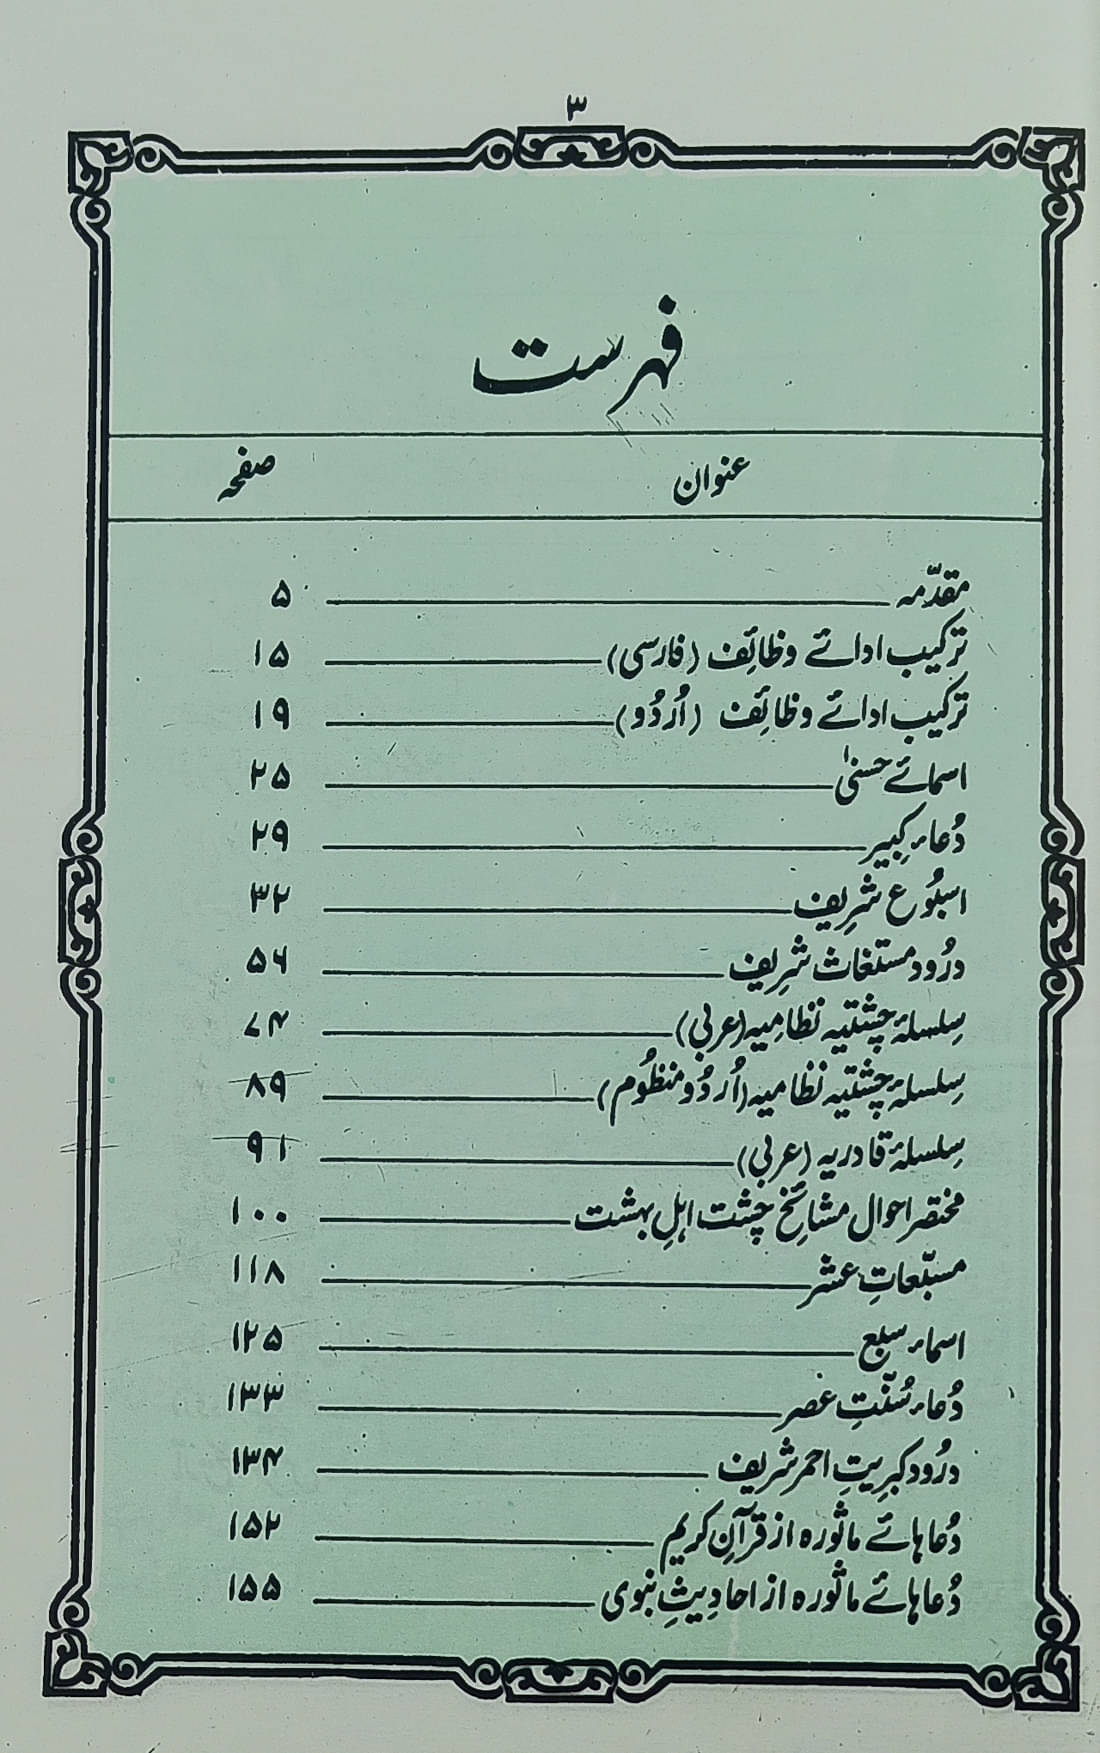 ۳
فہرست
عنوان صفحہ
مقدّمہ ۵
ترکیب ادائے وظائف (فارسی) ۱۵
ترکیب ادائے وظائف (اُردُو) ۱۹
اسمائے حسنیٰ ۲۵
دُعاء کبِیر ۲۹
اسبُوع شرِیف ۳۲
درُود مستغاث شرِیف ۵۶
سِلسلۂ چشتیہ نظامِیہ (عربی) ۷۴
سِلسلۂ چشتیہ نظامیہ (اُردُو منظُوم) ۸۹
سِلسلۂ قادریہ (عربی) ۹۱
مختصر احوال مشائخِ چشت اہلِ بہشت ۱۰۰
مسبّعاتِ عشر ۱۱۸
اسماء سبع ۱۲۵
دُعاء سُنّتِ عصر ۱۳۳
درُود کبرِیتِ احمر شریف ۱۳۴
دُعا ہائے ماثورہ از قرآنِ کریم ۱۵۲
دُعا ہائے ماثورہ از احادِیثِ نبوی ۱۵۵